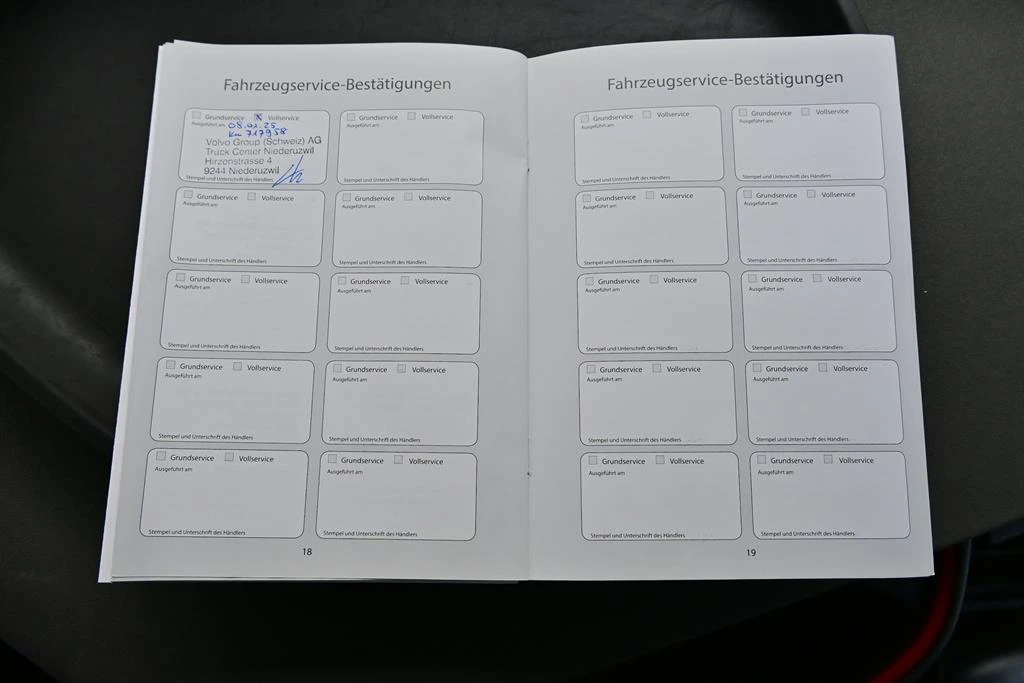 Fahrzeugservice-Bestätigungen
Grundservice Vollservice
Ausgeführt am 08.01.25
km 717958
Volvo Group (Schweiz) AG
Truck Center Niederuzwil
Hirzenstrasse 4
9244 Niederuzwil
Stempel und Unterschrift des Händlers
Grundservice Vollservice
Ausgeführt am
Stempel und Unterschrift des Händlers
Grundservice Vollservice
Ausgeführt am
Stempel und Unterschrift des Händlers
Grundservice Vollservice
Ausgeführt am
Stempel und Unterschrift des Händlers
Grundservice Vollservice
Ausgeführt am
Stempel und Unterschrift des Händlers
Grundservice Vollservice
Ausgeführt am
Stempel und Unterschrift des Händlers
Grundservice Vollservice
Ausgeführt am
Stempel und Unterschrift des Händlers
Grundservice Vollservice
Ausgeführt am
Stempel und Unterschrift des Händlers
Grundservice Vollservice
Ausgeführt am
Stempel und Unterschrift des Händlers
Grundservice Vollservice
Ausgeführt am
Stempel und Unterschrift des Händlers
18
Fahrzeugservice-Bestätigungen
Grundservice Vollservice
Ausgeführt am
Stempel und Unterschrift des Händlers
Grundservice Vollservice
Ausgeführt am
Stempel und Unterschrift des Händlers
Grundservice Vollservice
Ausgeführt am
Stempel und Unterschrift des Händlers
Grundservice Vollservice
Ausgeführt am
Stempel und Unterschrift des Händlers
Grundservice Vollservice
Ausgeführt am
Stempel und Unterschrift des Händlers
Grundservice Vollservice
Ausgeführt am
Stempel und Unterschrift des Händlers
Grundservice Vollservice
Ausgeführt am
Stempel und Unterschrift des Händlers
Grundservice Vollservice
Ausgeführt am
Stempel und Unterschrift des Händlers
Grundservice Vollservice
Ausgeführt am
Stempel und Unterschrift des Händlers
Grundservice Vollservice
Ausgeführt am
Stempel und Unterschrift des Händlers
19